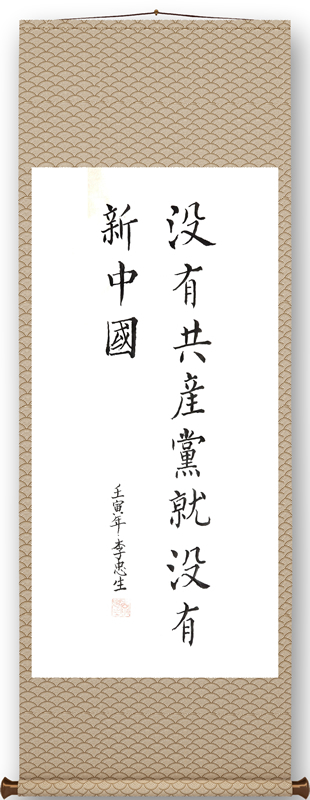 没有共産黨就没有
新中國
壬寅年李忠生